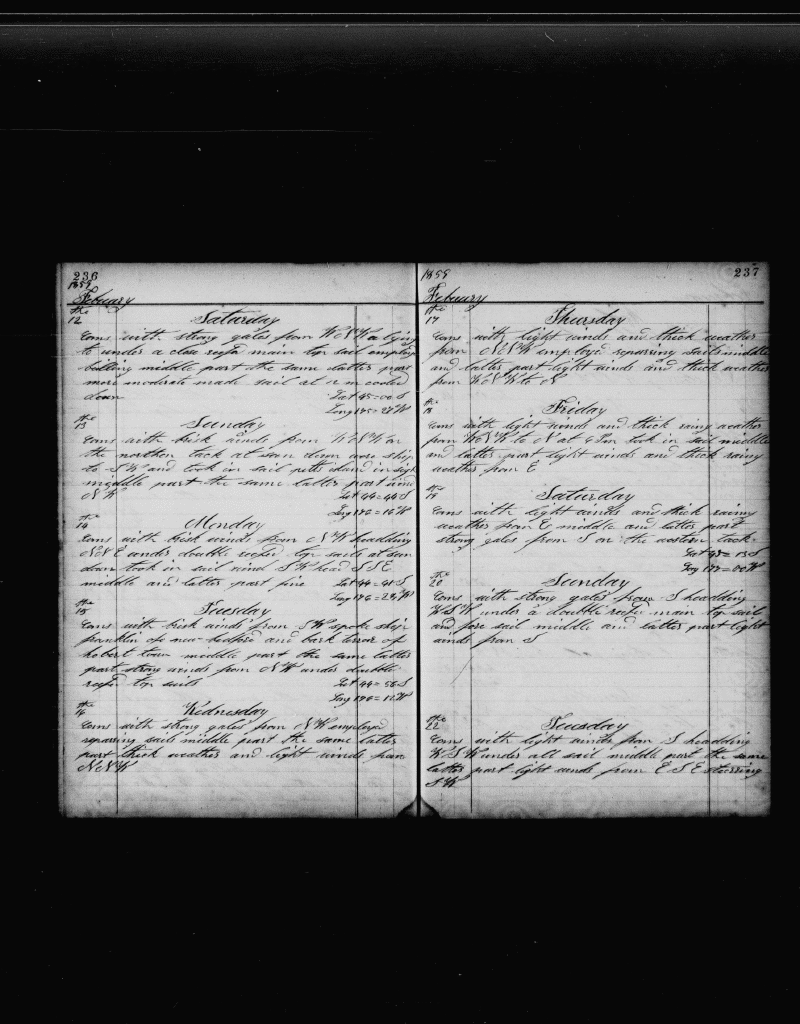 236
1859
Febuary
the
12 Saturday
Coms with strong gales from WNW a lying
to under a close reefd main top sail employ
billing middle part the same latter part
more moderate made sail at
down Lat 45=00 S
Long 175=27 W
the
13 Sunday
Coms with brisk winds from WNW on
the northen tack at sun down wore ship
to SW and took in sail island in sight
middle part the same latter part wind
NW Lat 44=44 S
Long 176=16 W
the
14 Monday
Coms with brisk winds from NW headding
NNE under double reefed top sails at sun
down took in sail wind SW head SSE
middle and latter part fine Lat 44=41 S
Long 176=24 W
the
15 Tuesday
Coms with brisk winds from SW spoke ship
franklin of new-bedford and bark terror of
hobert town middle part the same latter
part strong winds from NW under double
reefed top sails Lat 44=56 S
Long 176=12 W
the
16 Wednesday
Coms with strong gales from NW employd
reparing sail middle part the same latter
part thick weather and light winds from
NNW
1859 237
Febuary
the
17 Thursday
Coms with light winds and thick weather
from NNW employd reparing sails middle
and latter part light winds and thick weather
from WNW to N
the
18 Friday
Coms with light winds and thick rainy weather
from WNW to N at 6 Pm took in sail middle
and latter part light winds and thick rainy
weather from E
the
19 Saturday
Coms with light winds and thick rainy
weather from E middle and latter part
strong gales from S on the western tack
Lat 43=13 S
Long 177=00 W
the
20 Sunday
Coms with strong gales from S headding
WSW under a double reefd main top sail
and fore sail middle and latter part light
winds from S
the
22 Tuesday
Coms with light winds from S headding
WSW under all sail middle part the same
latter part light winds from ESE steering
SW